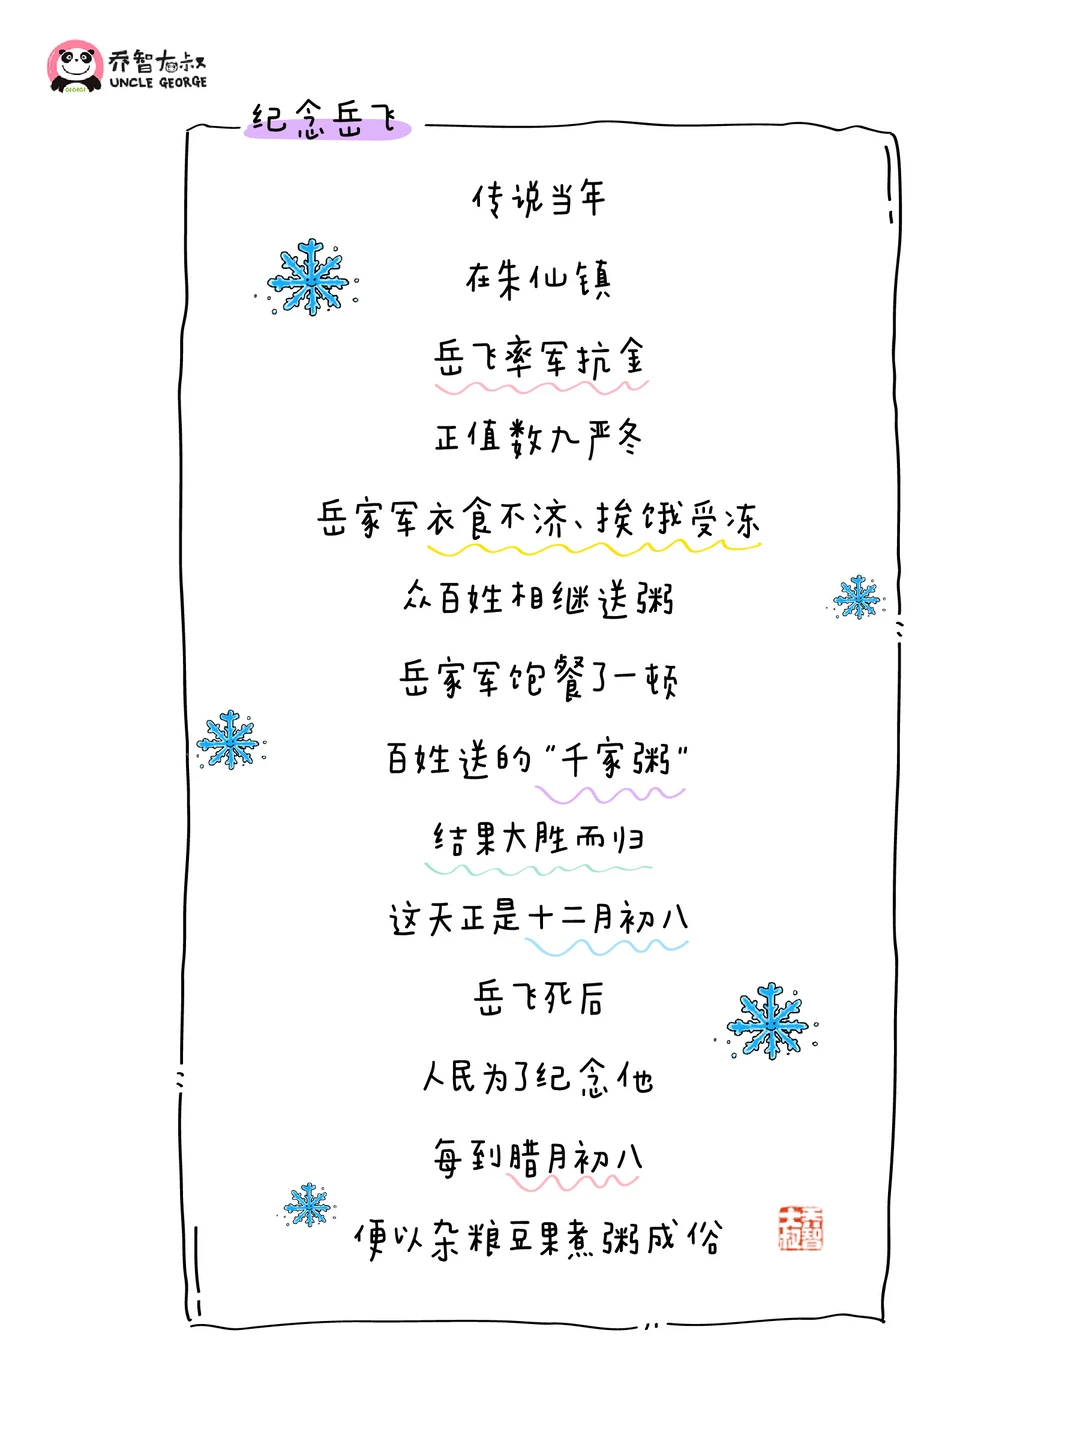 乔智大叔
UNCLE GEORGE
GEORGE
纪念岳飞
传说当年
在朱仙镇
岳飞率军抗金
正值数九严冬
岳家军衣食不济、挨饿受冻
众百姓相继送粥
岳家军饱餐了一顿
百姓送的“千家粥”
结果大胜而归
这天正是十二月初八
岳飞死后
人民为了纪念他
每到腊月初八
便以杂粮豆果煮粥成俗
乔智大叔